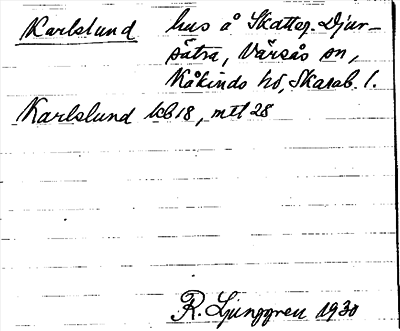 Karlslund hus å Skatteg. Djur-
sätra, Värsås sn,
Kåkinds hd, Skarab. l.
Karlslund kb 18, mtl 28
R. Ljunggren 1930